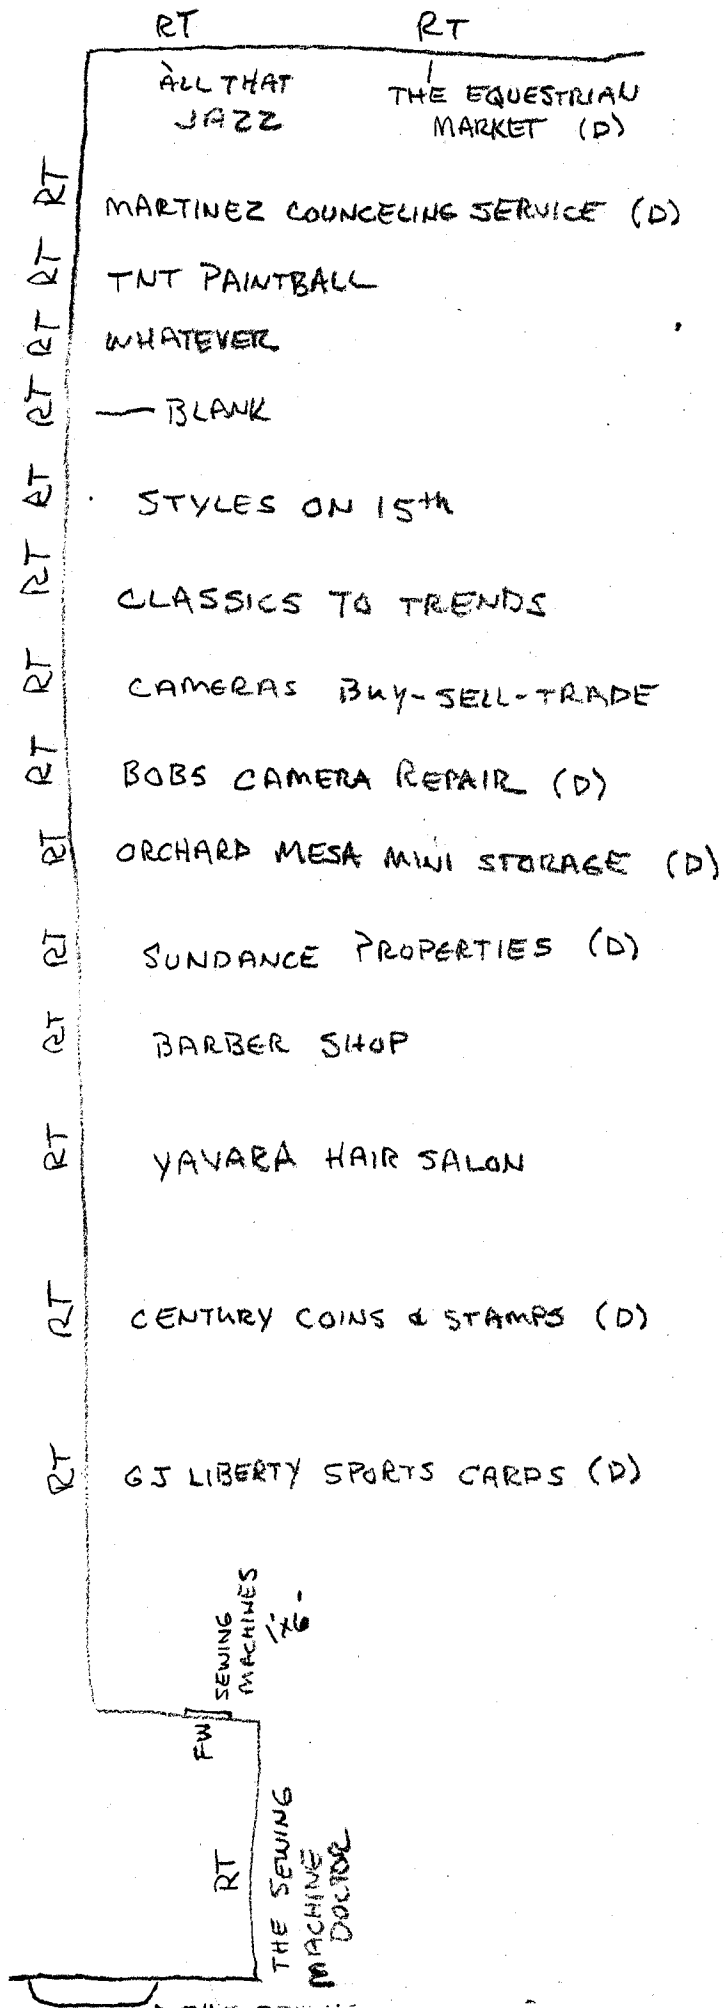 RT RT
ALL THAT
JAZZ
THE EQUESTRIAN
MARKET (D)
RT MARTINEZ COUNCELING SERVICE (D)
RT TNT PAINTBALL
RT WHATEVER
RT — BLANK
RT STYLES ON 15th
RT CLASSICS TO TRENDS
RT CAMERAS BUY-SELL-TRADE
RT BOBS CAMERA REPAIR (D)
RT ORCHARD MESA MINI STORAGE (D)
RT SUNDANCE PROPERTIES (D)
RT BARBER SHOP
RT YAVARA HAIR SALON
RT CENTURY COINS & STAMPS (D)
RT GJ LIBERTY SPORTS CARDS (D)
SEWING
MACHINES
1x6
FW
RT
THE SEWING
MACHINE
DOCTOR